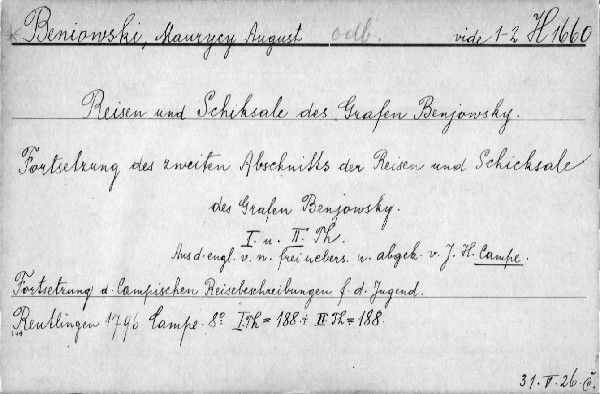 * Beniowski, Maurycy August odb. vide 1-2 H 1660
Reisen und Schiksale des Grafen Benjowsky.
Fortsetzung des zweiten Abschnitts der Reisen und Schicksale
des Grafen Benjowsky.
I. u. II. Th.
Aus d. engl. v. n. frei uebers. n. abgek. v. J. H. Campe.
Fortsetzung d. Campischen Reisebeschreibungen f. d. Jugend.
Reutlingen 1796 Campe. 8º I.Th = 188 + II Th = 188.
31. V. 26. č.